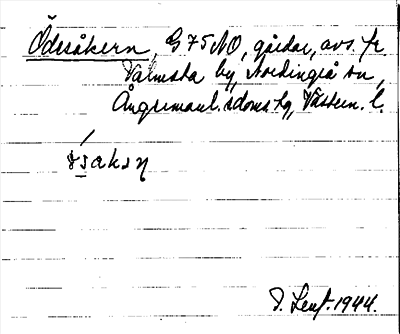 Ödesåkern, G 75 NO, gårdar, avs. fr.
Valmsta by, Nordingrå sn,
Ångermanl. s. doms. tg, Västern. l.
D. Lenf. 1944.